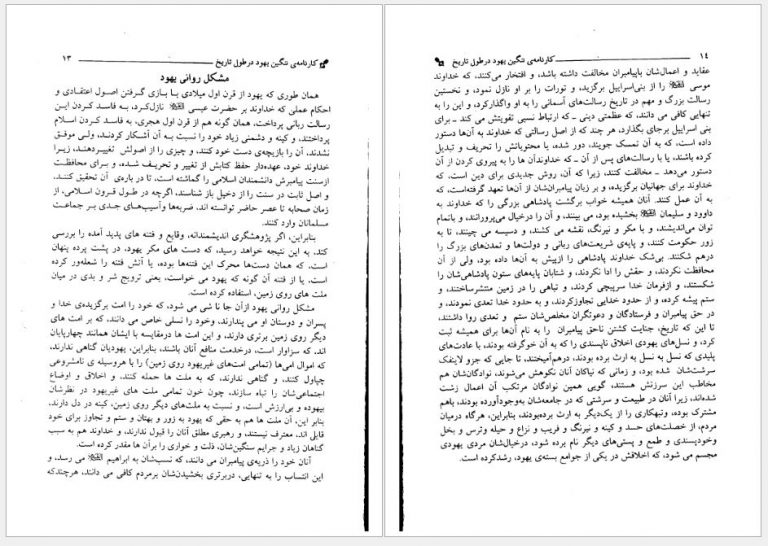 کارنامه‌ی ننگین یهود در طول تاریخ ۱۳
مشکل روانی یهود
همان طوری که یهود از قرن اول میلادی با بازی گرفتن اصول اعتقادی و
احکام عملی که خداوند بر حضرت عیسی نازل‌کرد، به فاسد کردن این
رسالت ربانی پرداخت، همان گونه هم از قرن اول هجری، به فاسد کردن اسلام
پرداختند، و کینه و دشمنی زیاد خود را نسبت به آن آشکار کردند، ولی موفق
نشدند، آن را بازیچه‌ی دست خود کنند، و چیزی را از اصولش تغییردهند، زیرا
خداوند خود، عهده‌دار حفظ کتابش از تغییر و تحریف شده، و برای محافظت
ازسنت پیامبرش دانشمندان اسلامی را گماشته است، تا در باره‌ی آن تحقیق کنند،
و اصل ثابت در سنت را از دخیل باز شناسند، اگرچه در طول قرون اسلامی، از
زمان صحابه تا عصر حاضر توانسته اند، ضربه‌ها وآسیب‌های جدی بر جماعت
مسلمانان وارد کنند.
بنابراین، اگر پژوهشگری اندیشمندانه، وقایع و فتنه های پدید آمده را بررسی
کند، به این نتیجه خواهد رسید، که دست های مکر یهود، در پشت پرده پنهان
است، که همان دست‌ها محرک این فتنه‌ها بوده، یا آتش فتنه را شعله‌ور کرده
است، یا از فتنه آن گونه که یهود می خواست، یعنی ترویج شر و بدی در میان
ملت های روی زمین، استفاده کرده است.
مشکل روانی یهود ازآن جا نا شی می شود، که خود را امت برگزیده‌ی خدا و
پسران و دوستان او می پندارند، وخود را نسلی خاص می دانند، که بر امت های
دیگر روی زمین برتری دارند، و این امت ها درمقایسه با ایشان همانند چهارپایان
اند. که سزاوار است، درخدمت منافع آنان باشند، بنابراین، یهودیان گناهی ندارند،
که اموال امی‌ها (تمامی امت‌های غیریهود روی زمین) را با هروسیله ی نامشروعی
چپاول کنند، و گناهی ندارند، که به ملت ها حمله کنند، و اخلاق و اوضاع
اجتماعی‌شان را تباه سازند، چون خون تمامی ملت های غیریهود در نظرشان
بیهوده و بی‌ارزش است، و نسبت به ملت‌های دیگر روی زمین، کینه در دل دارند،
بنابر این، آن ملت ها هم به حقی که یهود به زور و بهتان و ستم و تجاوز برای خود
قایل اند. معترف نیستند، و رهبری مطلق آنان را قبول ندارند، و خداوند هم به سبب
گناهان زیاد و جرایم سنگین‌شان، ذلت و خواری را برآن ها مقدر کرده است.
آنان خود را ذریه‌ی پیامبران می دانند، که نسب‌شان به ابراهیم می رسد، و
این انتساب را به تنهایی، دربرتری بخشیدن‌شان برمردم کافی می دانند، هرچندکه
کارنامه‌ی ننگین یهود در طول تاریخ ۱۴
عقاید و اعمال‌شان باپیامبران مخالفت داشته باشد، و افتخار می‌کنند، که خداوند
موسی را از بنی‌اسراییل برگزید، و تورات را بر او نازل نمود، و نخستین
رسالت بزرگ و مهم در تاریخ رسالت‌های آسمانی را به او واگذارکرد، و این را به
تنهایی کافی می دانند، که عظمتی دینی ـ که ارتباط نسبی تقویتش می کند ـ برای
بنی اسراییل برجای بگذارد، هر چند که از اصل رسالتی که خداوند به آن‌ها دستور
داده است، که به آن تمسک جویند، دور شده، یا محتویاتش را تحریف و تبدیل
کرده باشند، یا با رسالت‌های پس از آن ـ که خداوندآن ها را به پیروی کردن از آن
دستور می‌دهد ـ مخالفت کنند، زیرا که آن، روش جدیدی برای دین است، که
خداوند برای جهانیان برگزیده، و بر زبان پیامبران‌شان از آن‌ها تعهد گرفته‌است، که
به آن عمل کنند. آنان همیشه خواب برگشت پادشاهی بزرگی را که خداوند به
داوود و سلیمان بخشیده بود، می بینند، و آن را درخیال می‌پرورانند، و باتمام
توان می‌اندیشند، و با مکر و نیرنگ، نقشه می کشند، و دسیسه می چینند، تا به
زور حکومت کنند، و پایه‌ی شریعت‌های ربانی و دولت‌ها و تمدن‌های بزرگ را
درهم شکنند. بی‌شک خداوند پادشاهی را ازپیش به آن‌ها داده بود، ولی از آن
محافظت نکردند، و حقش را ادا نکردند، و شتابان پایه‌های ستون پادشاهی‌شان را
شکستند، و ازفرمان خدا سرپیچی کردند، و تباهی را در زمین منتشرساختند، و
ستم پیشه کرده، و از حدود خدایی تجاوزکردند، و به حدود خدا تعدی نمودند، و
در حق پیامبران و فرستادگان و دعوتگران مخلص‌شان ستم و تعدی روا داشتند،
تا این که تاریخ، جنایت کشتن ناحق پیامبران را به نام آن‌ها برای همیشه ثبت
کرد، و نسل‌های یهودی اخلاق ناپسندی را که به آن خوگرفته بودند، با عادت‌های
پلیدی که نسل به نسل به ارث برده بودند، درهم‌آمیختند، تا جایی که جزو لاینفک
سرشت‌شان شده بود، و زمانی که نیاکان آنان نکوهش می‌شوند، نوادگان‌شان هم
مخاطب این سرزنش هستند، گویی همین نوادگان مرتکب آن اعمال زشت
شده‌اند، زیرا آنان در طبیعت و سرشتی که در جامعه‌شان به‌وجودآورده بودند، باهم
مشترک بوده، وتبهکاری را از یک‌دیگر به ارث برده‌بودند، بنابراین، هرگاه درمیان
مردم، از خصلت‌های حسد و کینه و نیرنگ و فریب و نزاع و حیله وترس و بخل
وخودپسندی و طمع و پستی‌های دیگر نام برده شود، درخیال‌شان مردی یهودی
مجسم می شود، که اخلاقش در یکی از جوامع بسته‌ی یهود، رشدکرده است.